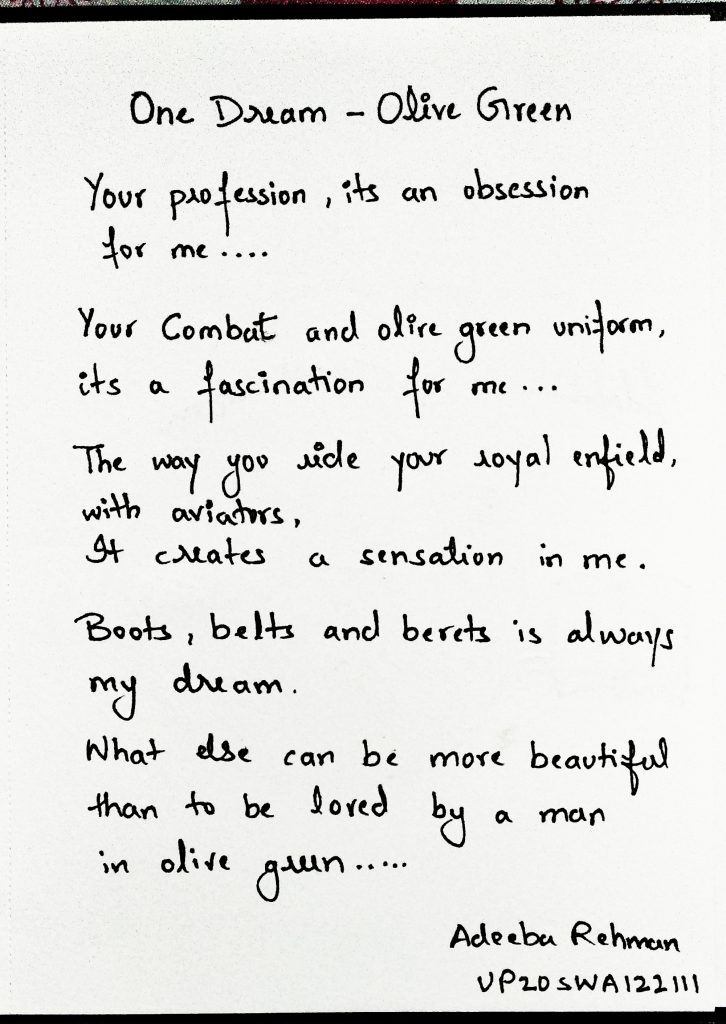 One Dream - Olive Green
Your profession, its an obsession
for me....
Your Combat and olive green uniform,
its a fascination for me...
The way you ride your royal enfield,
with aviators,
It creates a sensation in me.
Boots, belts and berets is always
my dream.
What else can be more beautiful
than to be loved by a man
in olive green.....
Adeeba Rehman
UP20SWA122111